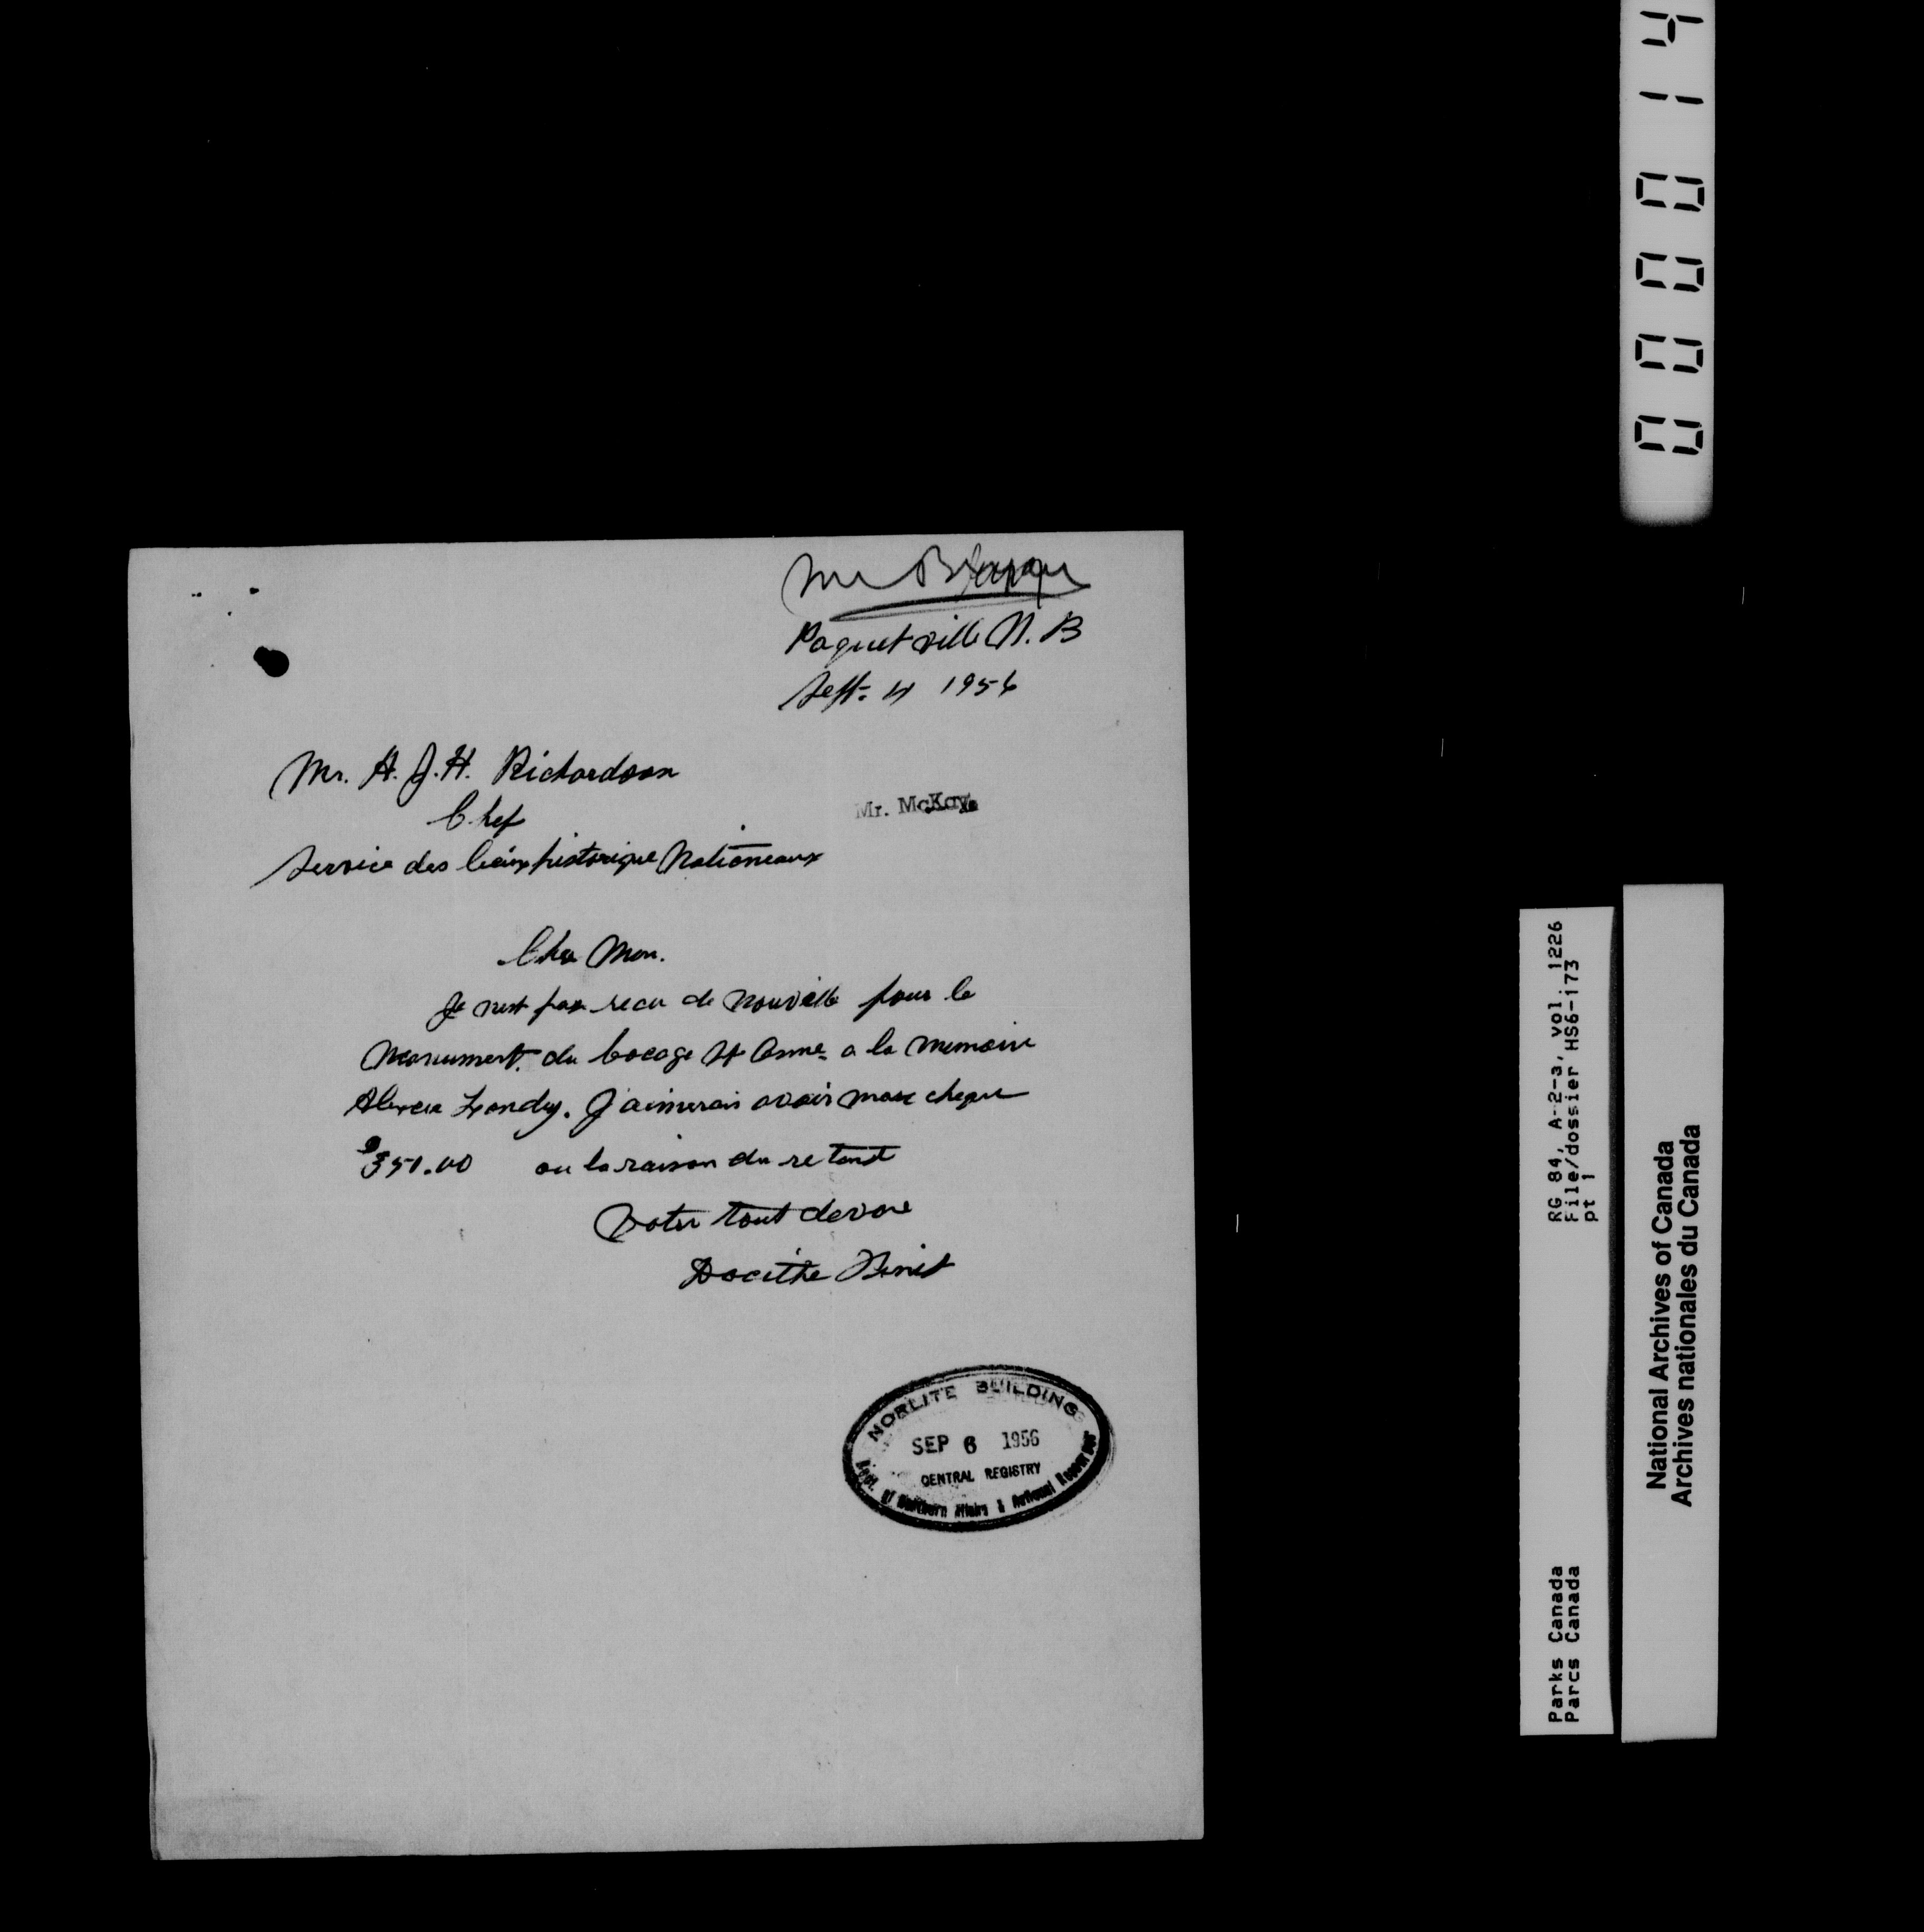 Mr
Paquetville N.B
Sept. 4 1956
Mr. A. J. H. Richardson
Chef
Mr. McKay.
Service des lieux historique Nationeaux
Cher Mon.
Je nest pas recu de nouvelle pour le
Monument. du bocage St Anne a la memoire
Alexis Landry. J aimerais avoir mon cheque
$350.00 ou la raison du retard
Votre tout devoue
Docithe Benit
NORLITE BUILDING
SEP 6 1956
CENTRAL REGISTRY
Dept. of Northern Affairs & National Resources
000014
RG 84, A-2-a, vol. 1226
File/dossier HS6-173
pt 1
Parks Canada
Parcs Canada
National Archives of Canada
Archives nationales du Canada